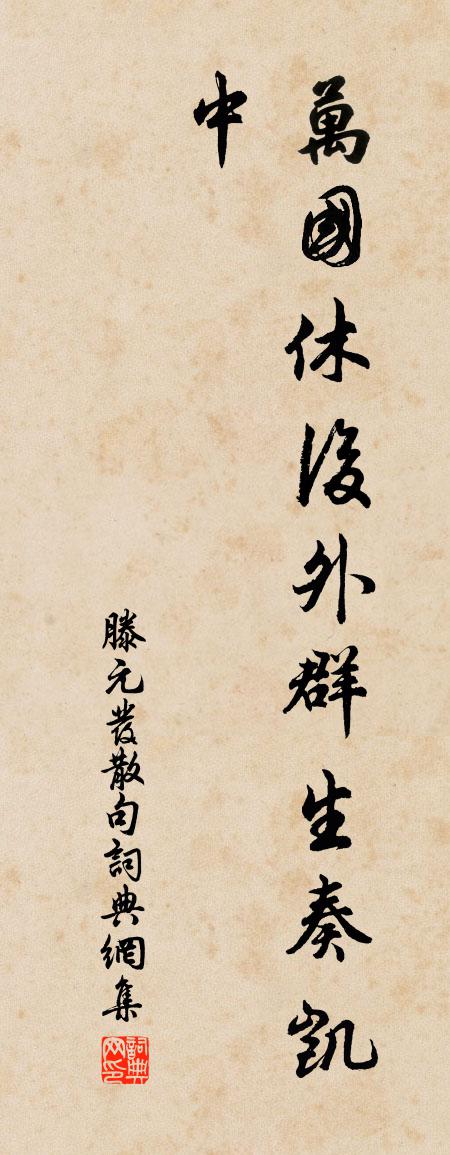 萬國休後外群生奏凱
中
滕元發散句詞典網集
詞典网印